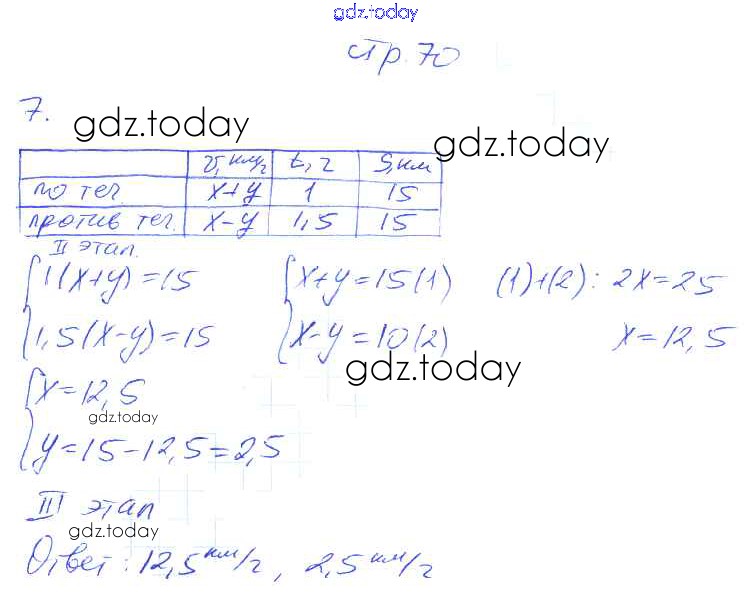 gdz.today
стр. 70
7.
gdz.today
gdz.today
v, км/ч t, ч S, км
по теч. x+y 1 15
против теч. x-y 1,5 15
II этап.
1(x+y)=15 x+y=15(1) (1)+(2): 2x=25
1,5(x-y)=15 x-y=10(2) x=12,5
gdz.today
x=12,5
gdz.today
y=15-12,5=2,5
III этап
gdz.today
Ответ: 12,5 км/ч, 2,5 км/ч